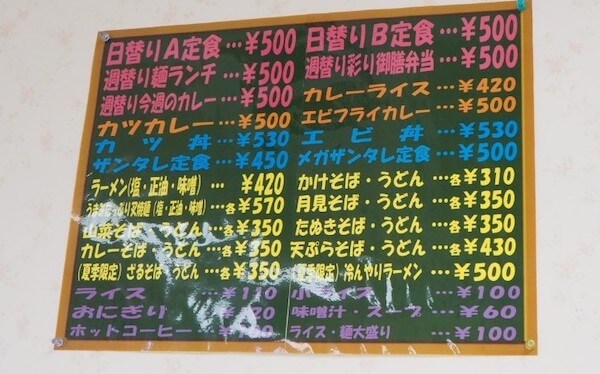 日替りA定食…¥500
週替り麺ランチ…¥500
週替り今週のカレー…¥500
カツカレー…¥500
カツ丼…¥530
ザンタレ定食…¥450
ラーメン(塩・正油・味噌)…¥420
たっぷり叉焼麺(塩・正油・味噌)…各¥570
山菜そば・うどん…各¥350
カレーそば・うどん…各¥350
(夏季限定)ざるそば・うどん…各¥350
ライス…¥110
おにぎり
ホットコーヒー…
日替りB定食…¥500
週替り彩り御膳弁当…¥500
カレーライス…¥420
エビフライカレー…¥500
エビ丼…¥530
メガザンタレ定食…¥500
かけそば・うどん…各¥310
月見そば・うどん…各¥350
たぬきそば・うどん…各¥350
天ぷらそば・うどん…各¥430
(夏季限定)冷んやりラーメン…¥500
小ライス…¥100
味噌汁・スープ…¥60
ライス・麺大盛り…¥100